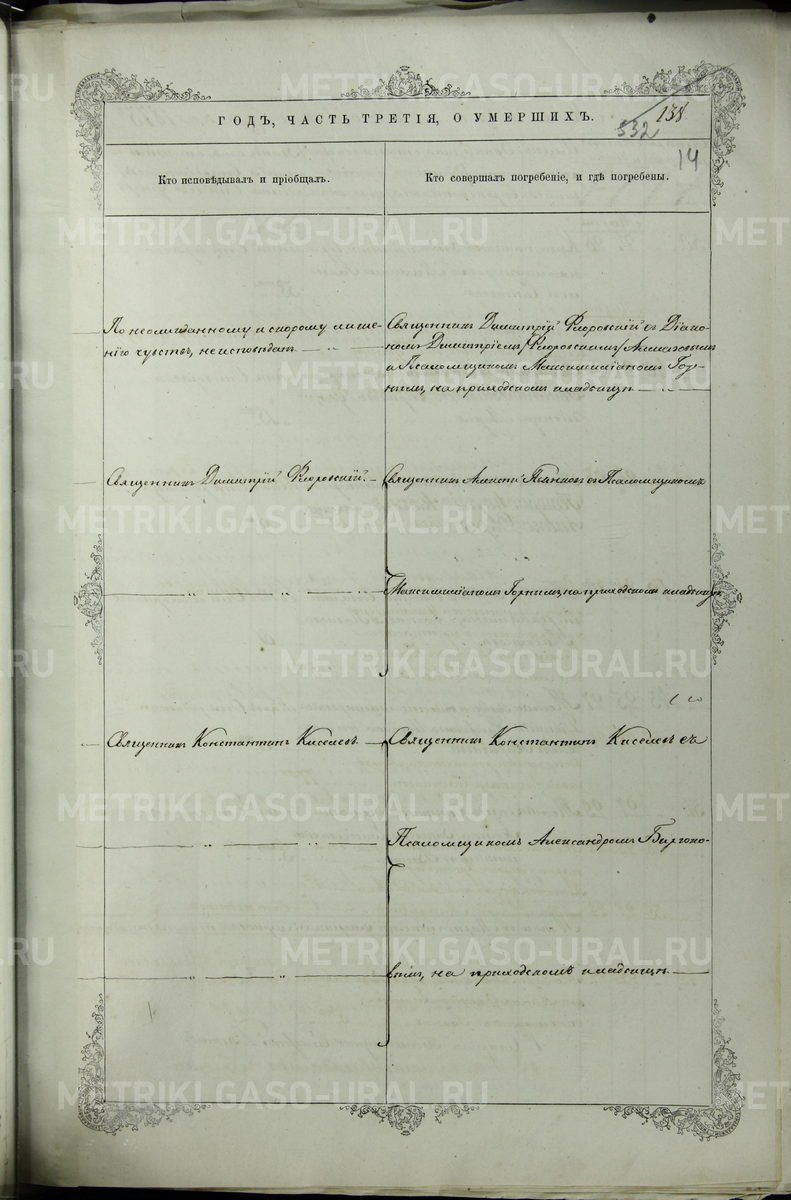 ГОДЪ, ЧАСТЬ ТРЕТІЯ, О УМЕРШИХЪ.
138
532
14
Кто исповѣдывалъ и пріобщалъ.
Кто совершалъ погребеніе, и гдѣ погребены.
По неожиданному и скорому лише-
нію чувствъ, не исповѣданъ
Священникъ Димитрій Флоровскій съ Діако-
номъ Димитріемъ
и Псаломщикомъ Максимиліаномъ Гор-
нымъ, на приходскомъ кладбищѣ
Священникъ Димитрій Флоровскій.
Священникъ Алексѣй Пьянковъ съ Псаломщикомъ
Максимиліаномъ Горнымъ, на приходскомъ кладбищѣ
Священникъ Константинъ Киселевъ.
Священникъ Константинъ Киселевъ съ
Псаломщикомъ Александромъ Бирюко-
вымъ, на приходскомъ кладбищѣ.
METRIKI.GASO-URAL.RU